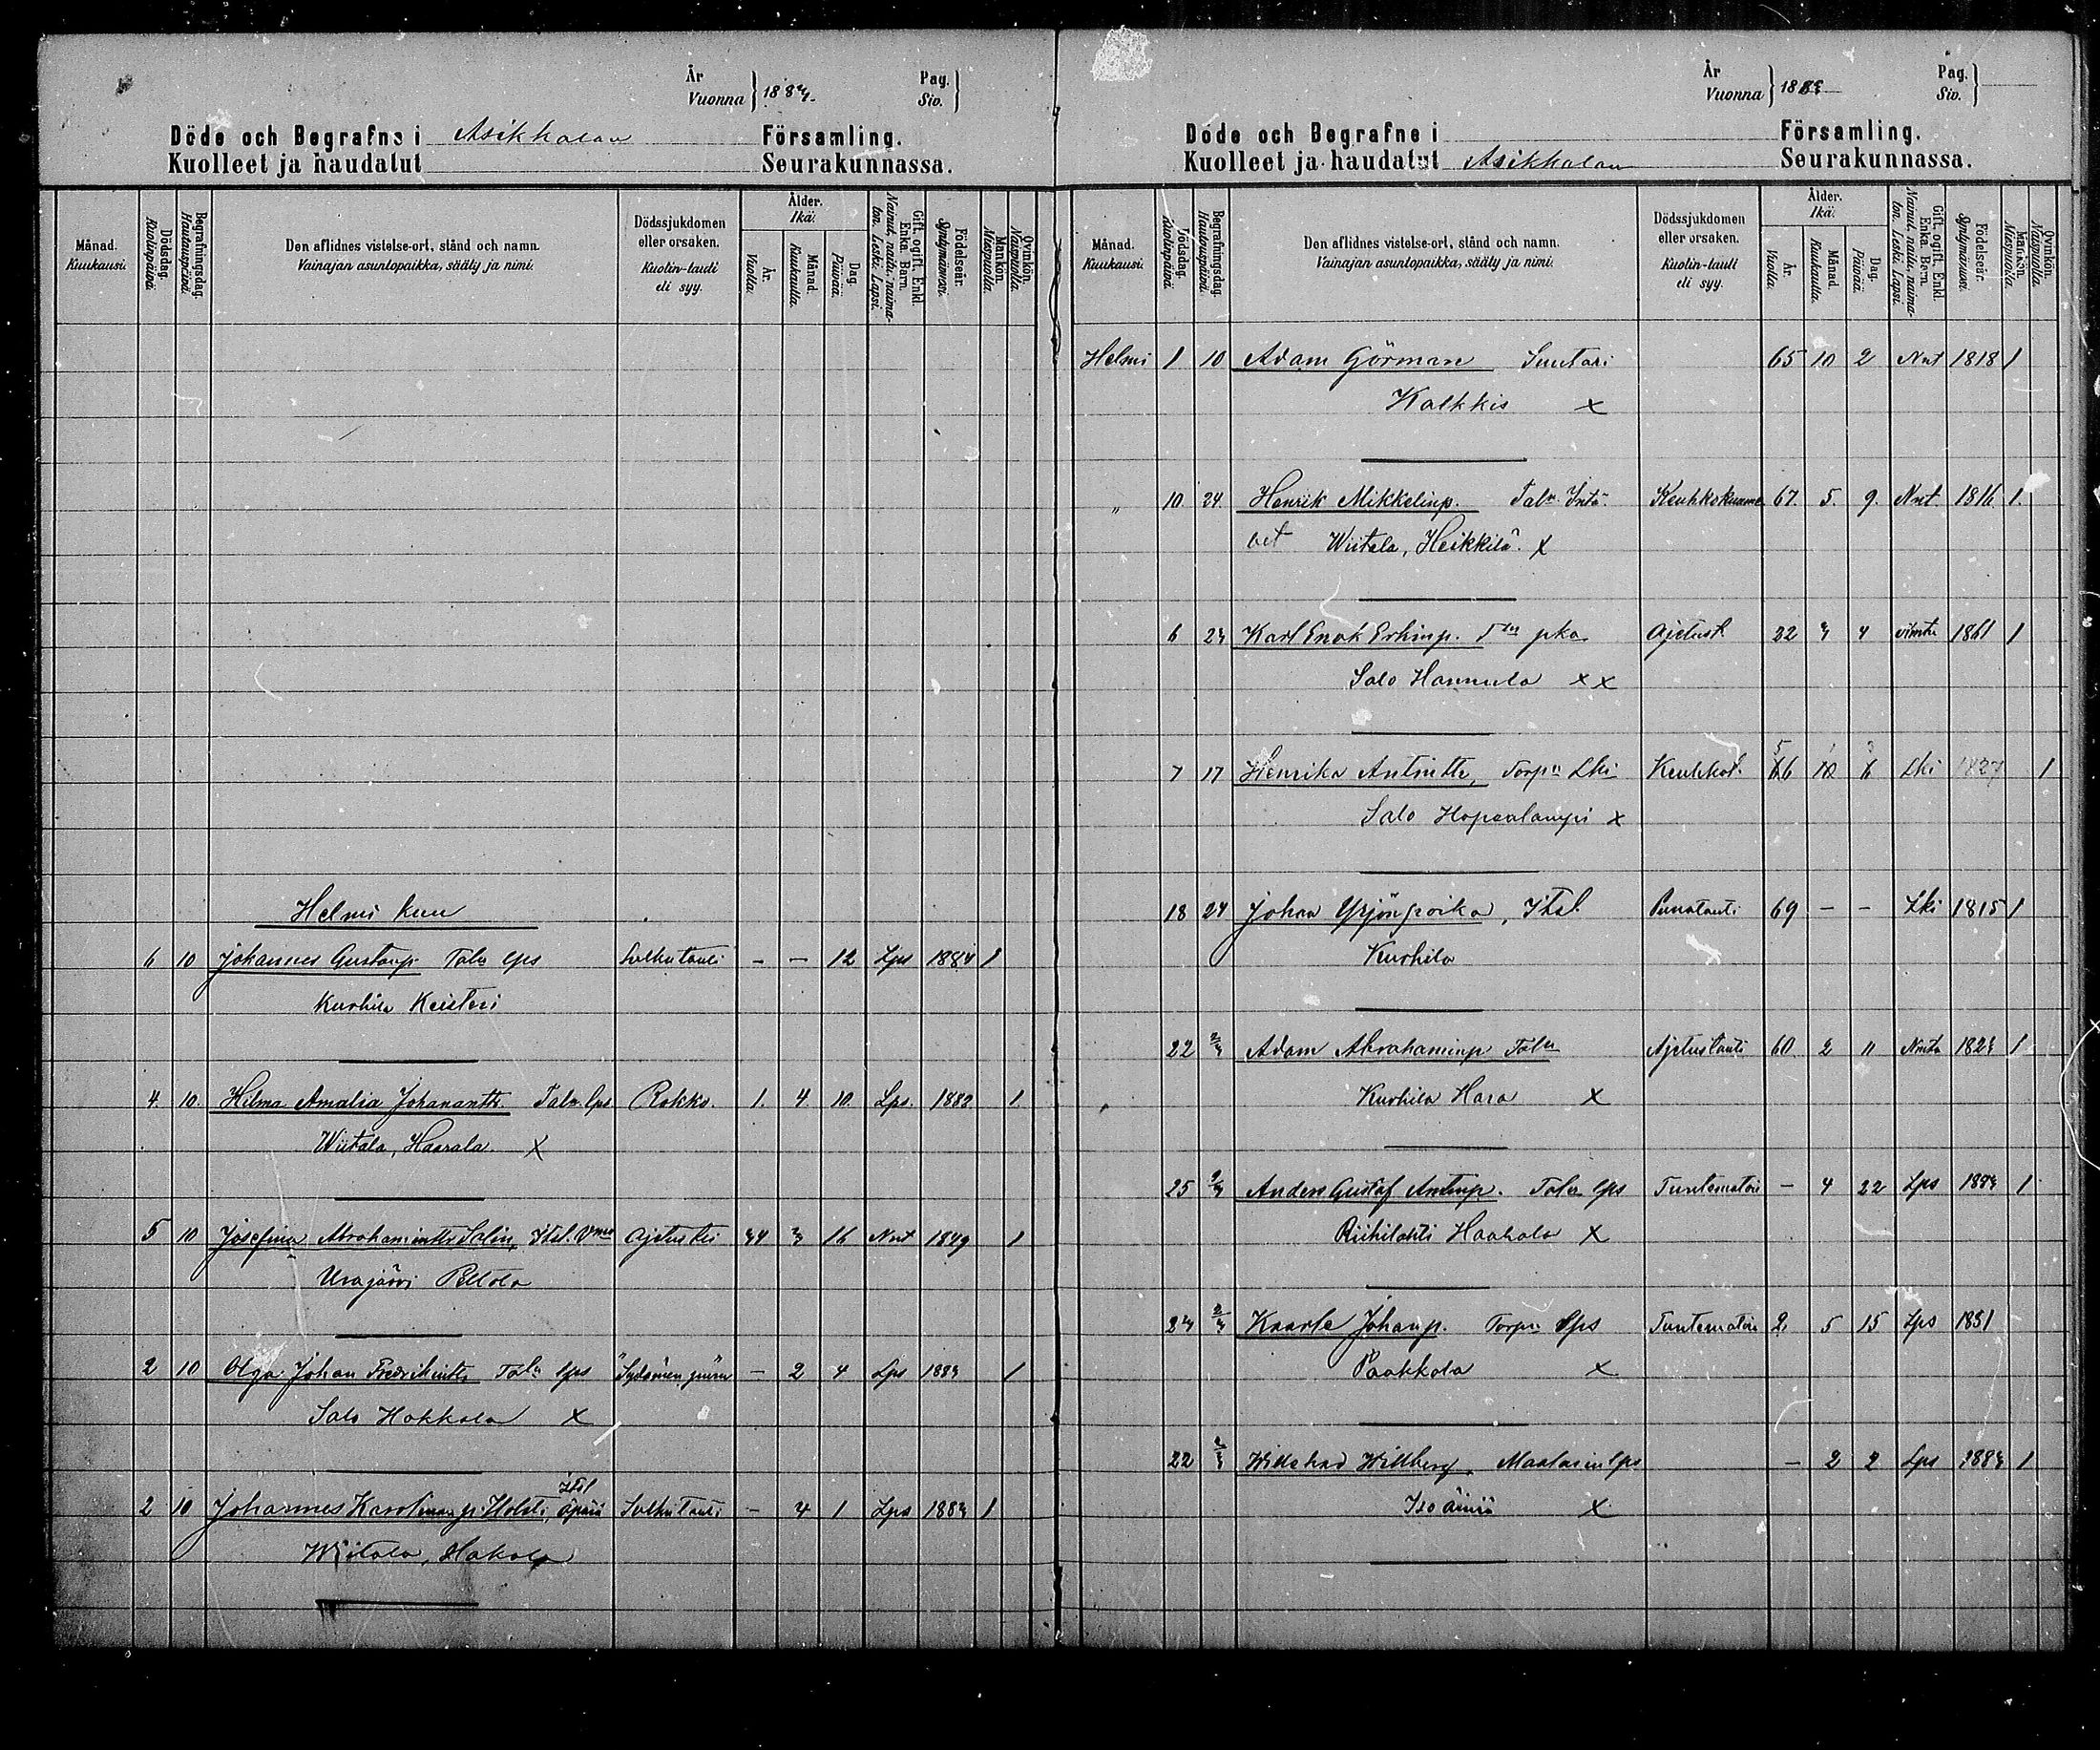 År
Vuonna } 1884.
Pag.
Siv. }
Döde och Begrafne i Asikkalan Församling.
Kuolleet ja haudatut Seurakunnassa.
Månad.
Kuukausi.
Dödsdag.
Kuolinpäivä.
Begrafningsdag.
Hautauspäivä.
Den aflidnes vistelse-ort, stånd och namn.
Vainajan asuntopaikka, sääty ja nimi.
Dödssjukdomen
eller orsaken.
Kuolin-tauti
eli syy.
Ålder.
Ikä.
År.
Vuotta.
Månad.
Kuukautta.
Dag.
Päivää.
Gift, ogift, Enkl.
Enka. Barn.
Nainut, naitu, naima-
ton. Leski. Lapsi.
Födelseår.
Syntymävuosi.
Mankön.
Miespuolta.
Qvinkön.
Naispuolta.
Helmi kuu
6 10 Johannes Gustafp. Taln lps Suthutauti - - 12 Lps 1884 1
Kurhila Keisteri
4. 10. Hilma Amalia Johanantr. Taln. lps Rokko. 1. 4 10. Lps. 1882 1.
Wiitala, Haarala. X
5 10 Josefina Abrahamintr Salin, Itsl. Vmo Ajetus ti 34 3 16 Nnt 1849 1
Urajärvi Peltola
2 10 Olga Johan Fredrikintr Taln lps Sydämen 2 4 Lps 1883 1
Salo Hakkala X
2 10 Johannes Karolinan p. Holsti, Itsl äpärä Suthutauti - 4 1 Lps 1883 1
Wiitala, Hakala
År
Vuonna } 188
Pag.
Siv. }
Döde och Begrafne i Församling.
Kuolleet ja haudatut Asikkalan Seurakunnassa.
Månad.
Kuukausi.
Dödsdag.
Kuolinpäivä.
Begrafningsdag.
Hautauspäivä.
Den aflidnes vistelse-ort, stånd och namn.
Vainajan asuntopaikka, sääty ja nimi.
Dödssjukdomen
eller orsaken.
Kuolin-tauti
eli syy.
Ålder.
Ikä.
År.
Vuotta.
Månad.
Kuukautta.
Dag.
Päivää.
Gift, ogift, Enkl.
Enka. Barn.
Nainut, naitu, naima-
ton. Leski. Lapsi.
Födelseår.
Syntymävuosi.
Mankön.
Miespuolta.
Qvinkön.
Naispuolta.
Helmi 1 10 Adam Görman Suutari 65 10 2 Nnt 1818 1
Kalkkis X
„ 10. 24. Henrik Mikkelinp. Taln. Isäntä Keuhkokuume 67. 5. 9. Nnt. 1816. 1.
Wiitala, Heikkilä. X
6 23 Karl Enok Erkinp. Tln pka Ajetust 22 3 4 1861 1
Salo Hannula X X
7 17 Henrika Antintr, Torpn Lki Keuhkot. 66 10 6 Lki 1827 1
Salo Hopealampi X
18 24 Johan Yrjönpoika, Itsl. Punatauti 69 - - Lki 1815 1
Kurhila
22 2/3 Adam Abrahaminp Taln Ajetustauti 60 2 11 Nnt 1823 1
Kurhila Hara X
25 2/3 Anders Gustaf Antinp. Taln lps Tuntematoin - 4 22 Lps 1883 1
Riihilahti Haakala X
23 2/3 Kaarle Johanp. Torpn lps Tuntematoin 2. 5 15 Lps 1851
Paakkola X
22 2/3 Willehad Willberg, lps - 2 2 Lps 1883 1
Iso äiniö X